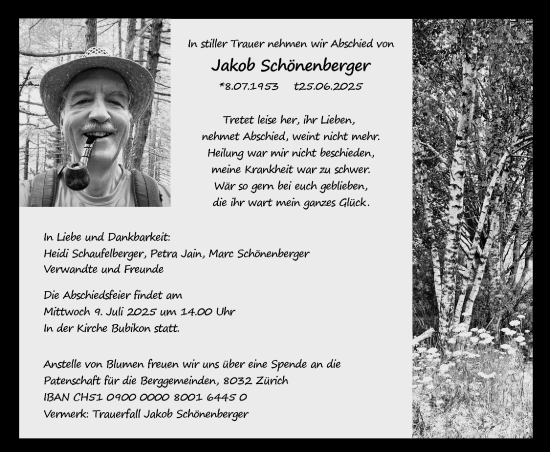 In stiller Trauer nehmen wir Abschied von
Jakob Schönenberger
*8.07.1953 †25.06.2025
Tretet leise her, ihr Lieben,
nehmet Abschied, weint nicht mehr.
Heilung war mir nicht beschieden,
meine Krankheit war zu schwer.
Wär so gern bei euch geblieben,
die ihr wart mein ganzes Glück.
In Liebe und Dankbarkeit:
Heidi Schaufelberger, Petra Jain, Marc Schönenberger
Verwandte und Freunde
Die Abschiedsfeier findet am
Mittwoch 9. Juli 2025 um 14.00 Uhr
In der Kirche Bubikon statt.
Anstelle von Blumen freuen wir uns über eine Spende an die
Patenschaft für die Berggemeinden, 8032 Zürich
IBAN CH51 0900 0000 8001 6445 0
Vermerk: Trauerfall Jakob Schönenberger